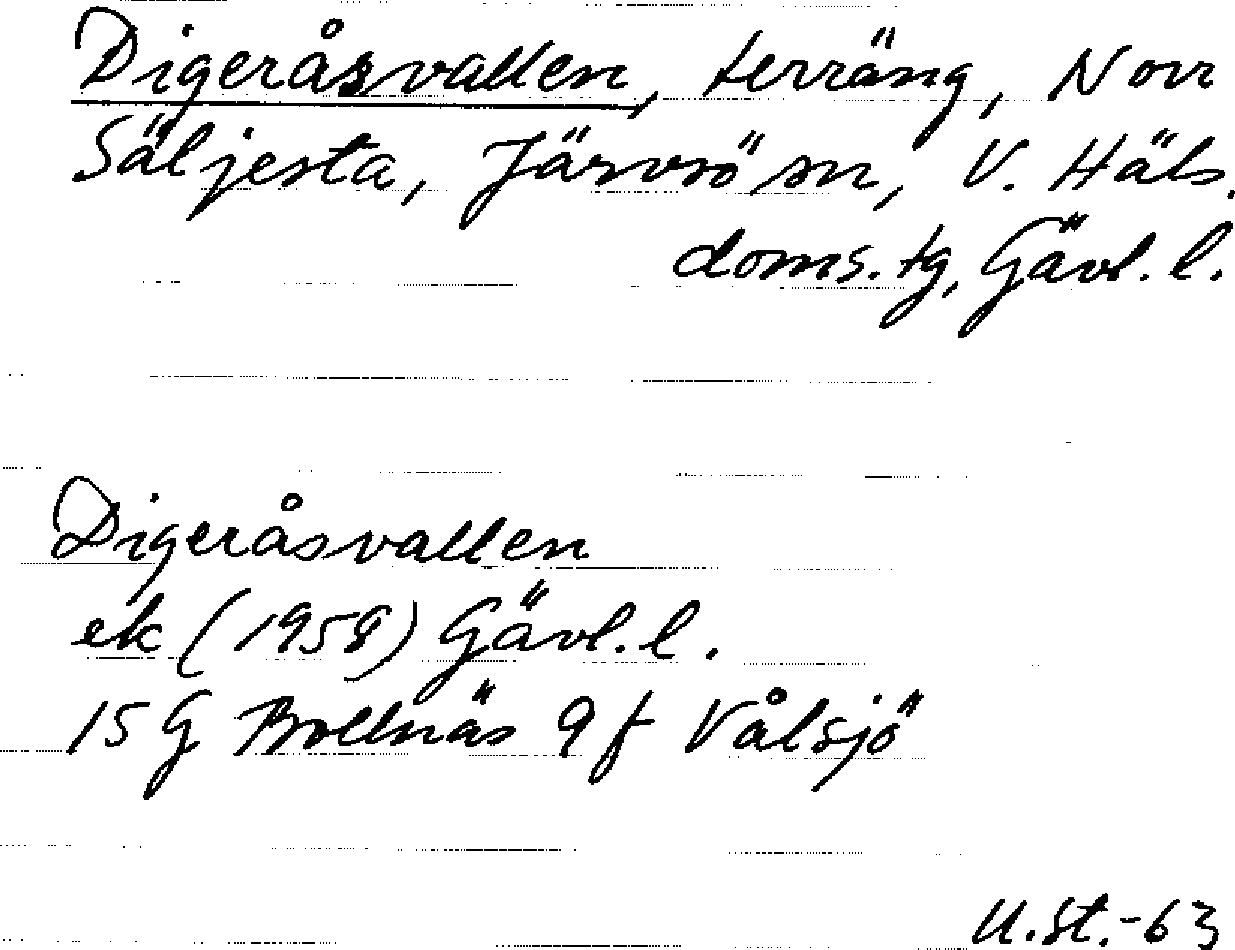 Digeråsvallen, terräng, Norr
Säljesta, Järvsö sn, V. Häls.
doms.tg, Gävl.l.
Digeråsvallen
ek (1958) Gävl.l.
15 G Bollnäs 9 f Vålsjö
U.St.-63